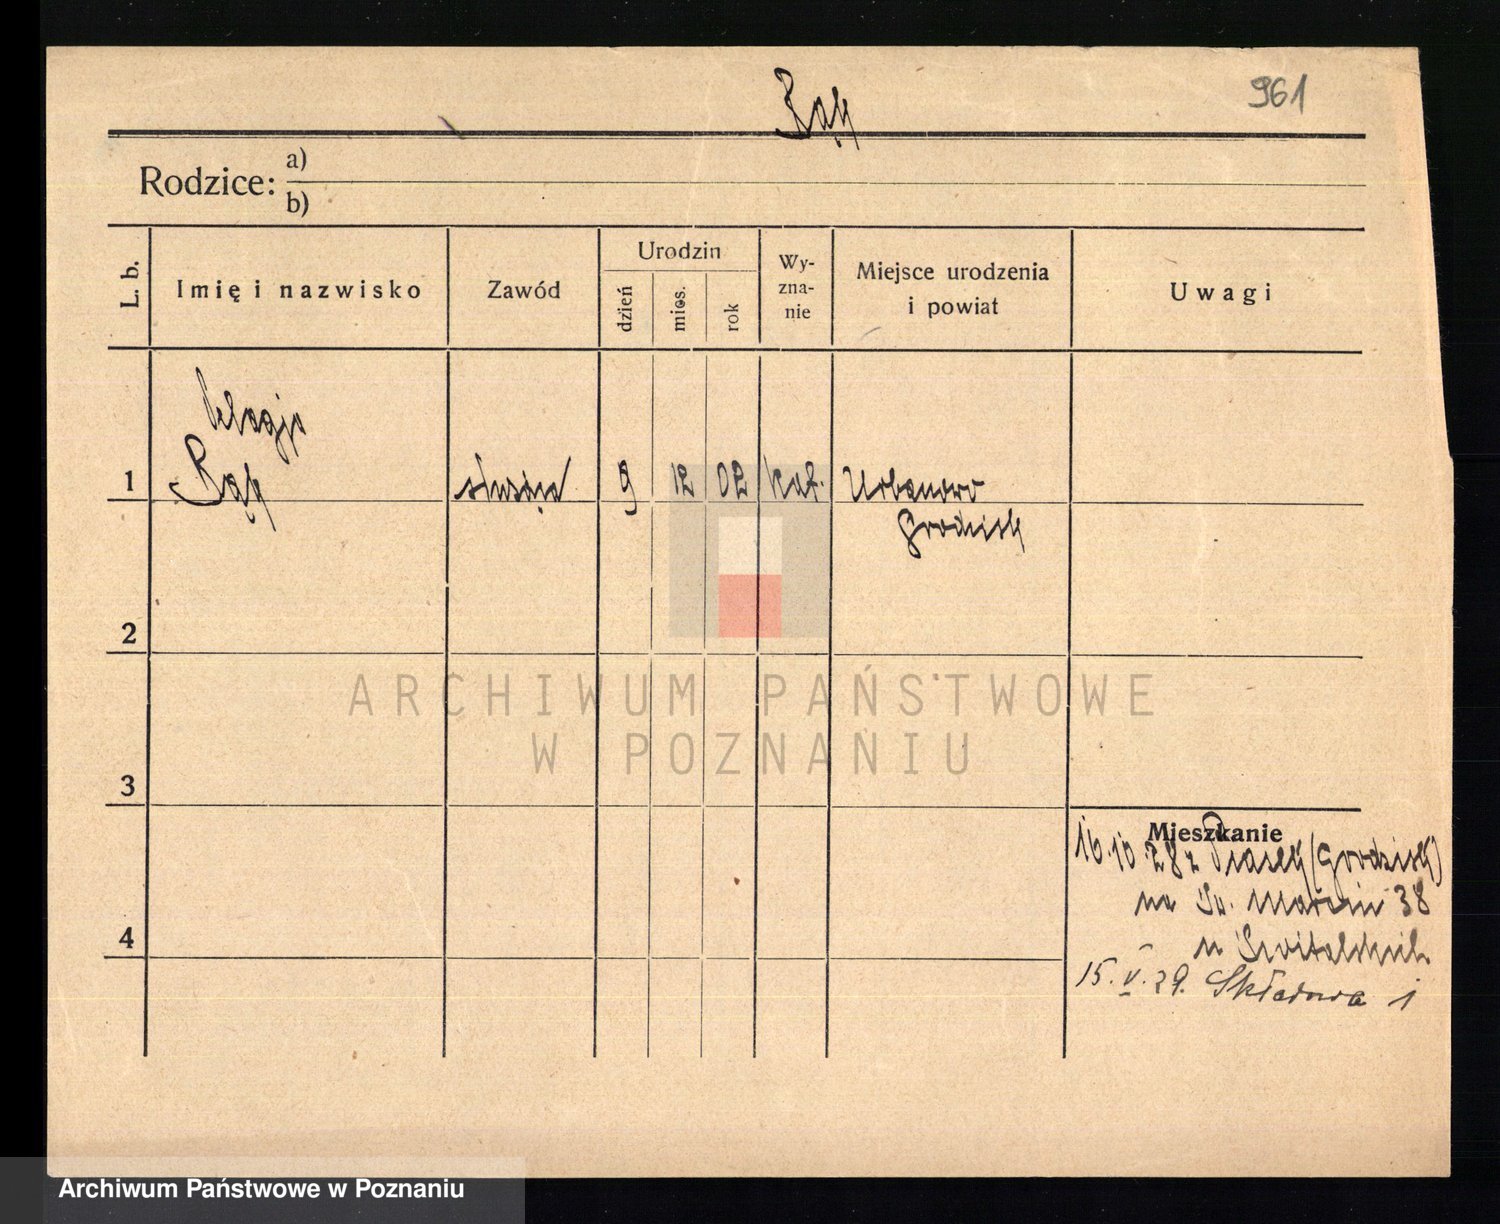 961
Bąk
Rodzice: a)
b)
L. b.
Imię i nazwisko
Zawód
Urodzin
dzień
mies.
rok
Wy-
zna-
nie
Miejsce urodzenia
i powiat
Uwagi
Bąk
1
służąca
9
12
02
kat.
Urbanowo
Grodzisk
2
3
4
Mieszkanie
16.10.28 z Ptaszk (Grodzisk)
na Św. Marcin 38
u Świtalskich
15.V.29. Składowa 1
ARCHIWUM PAŃSTWOWE
W POZNANIU
Archiwum Państwowe w Poznaniu